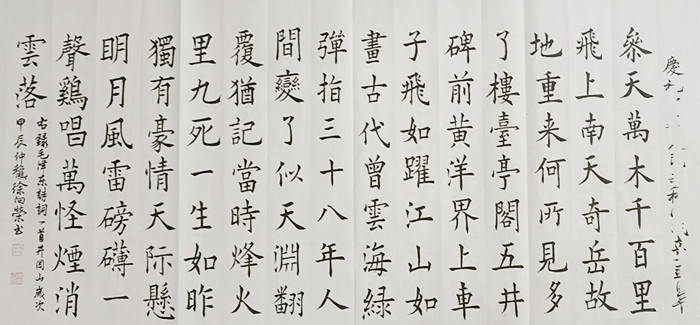 叅天萬木千百里
飛上南天奇岳故
地重来何所見多
了樓臺亭閣五井
碑前黃洋界上車
子飛如躍江山如
畫古代曾雲海緑
彈指三十八年人
間變了似天淵翻
覆猶記當時烽火
里九死一生如昨
獨有豪情天际懸
明月風雷磅礴一
聲鷄唱萬怪煙消
雲落
右録毛澤东詩詞一首井岡山歲次
甲辰仲龝徐向榮书